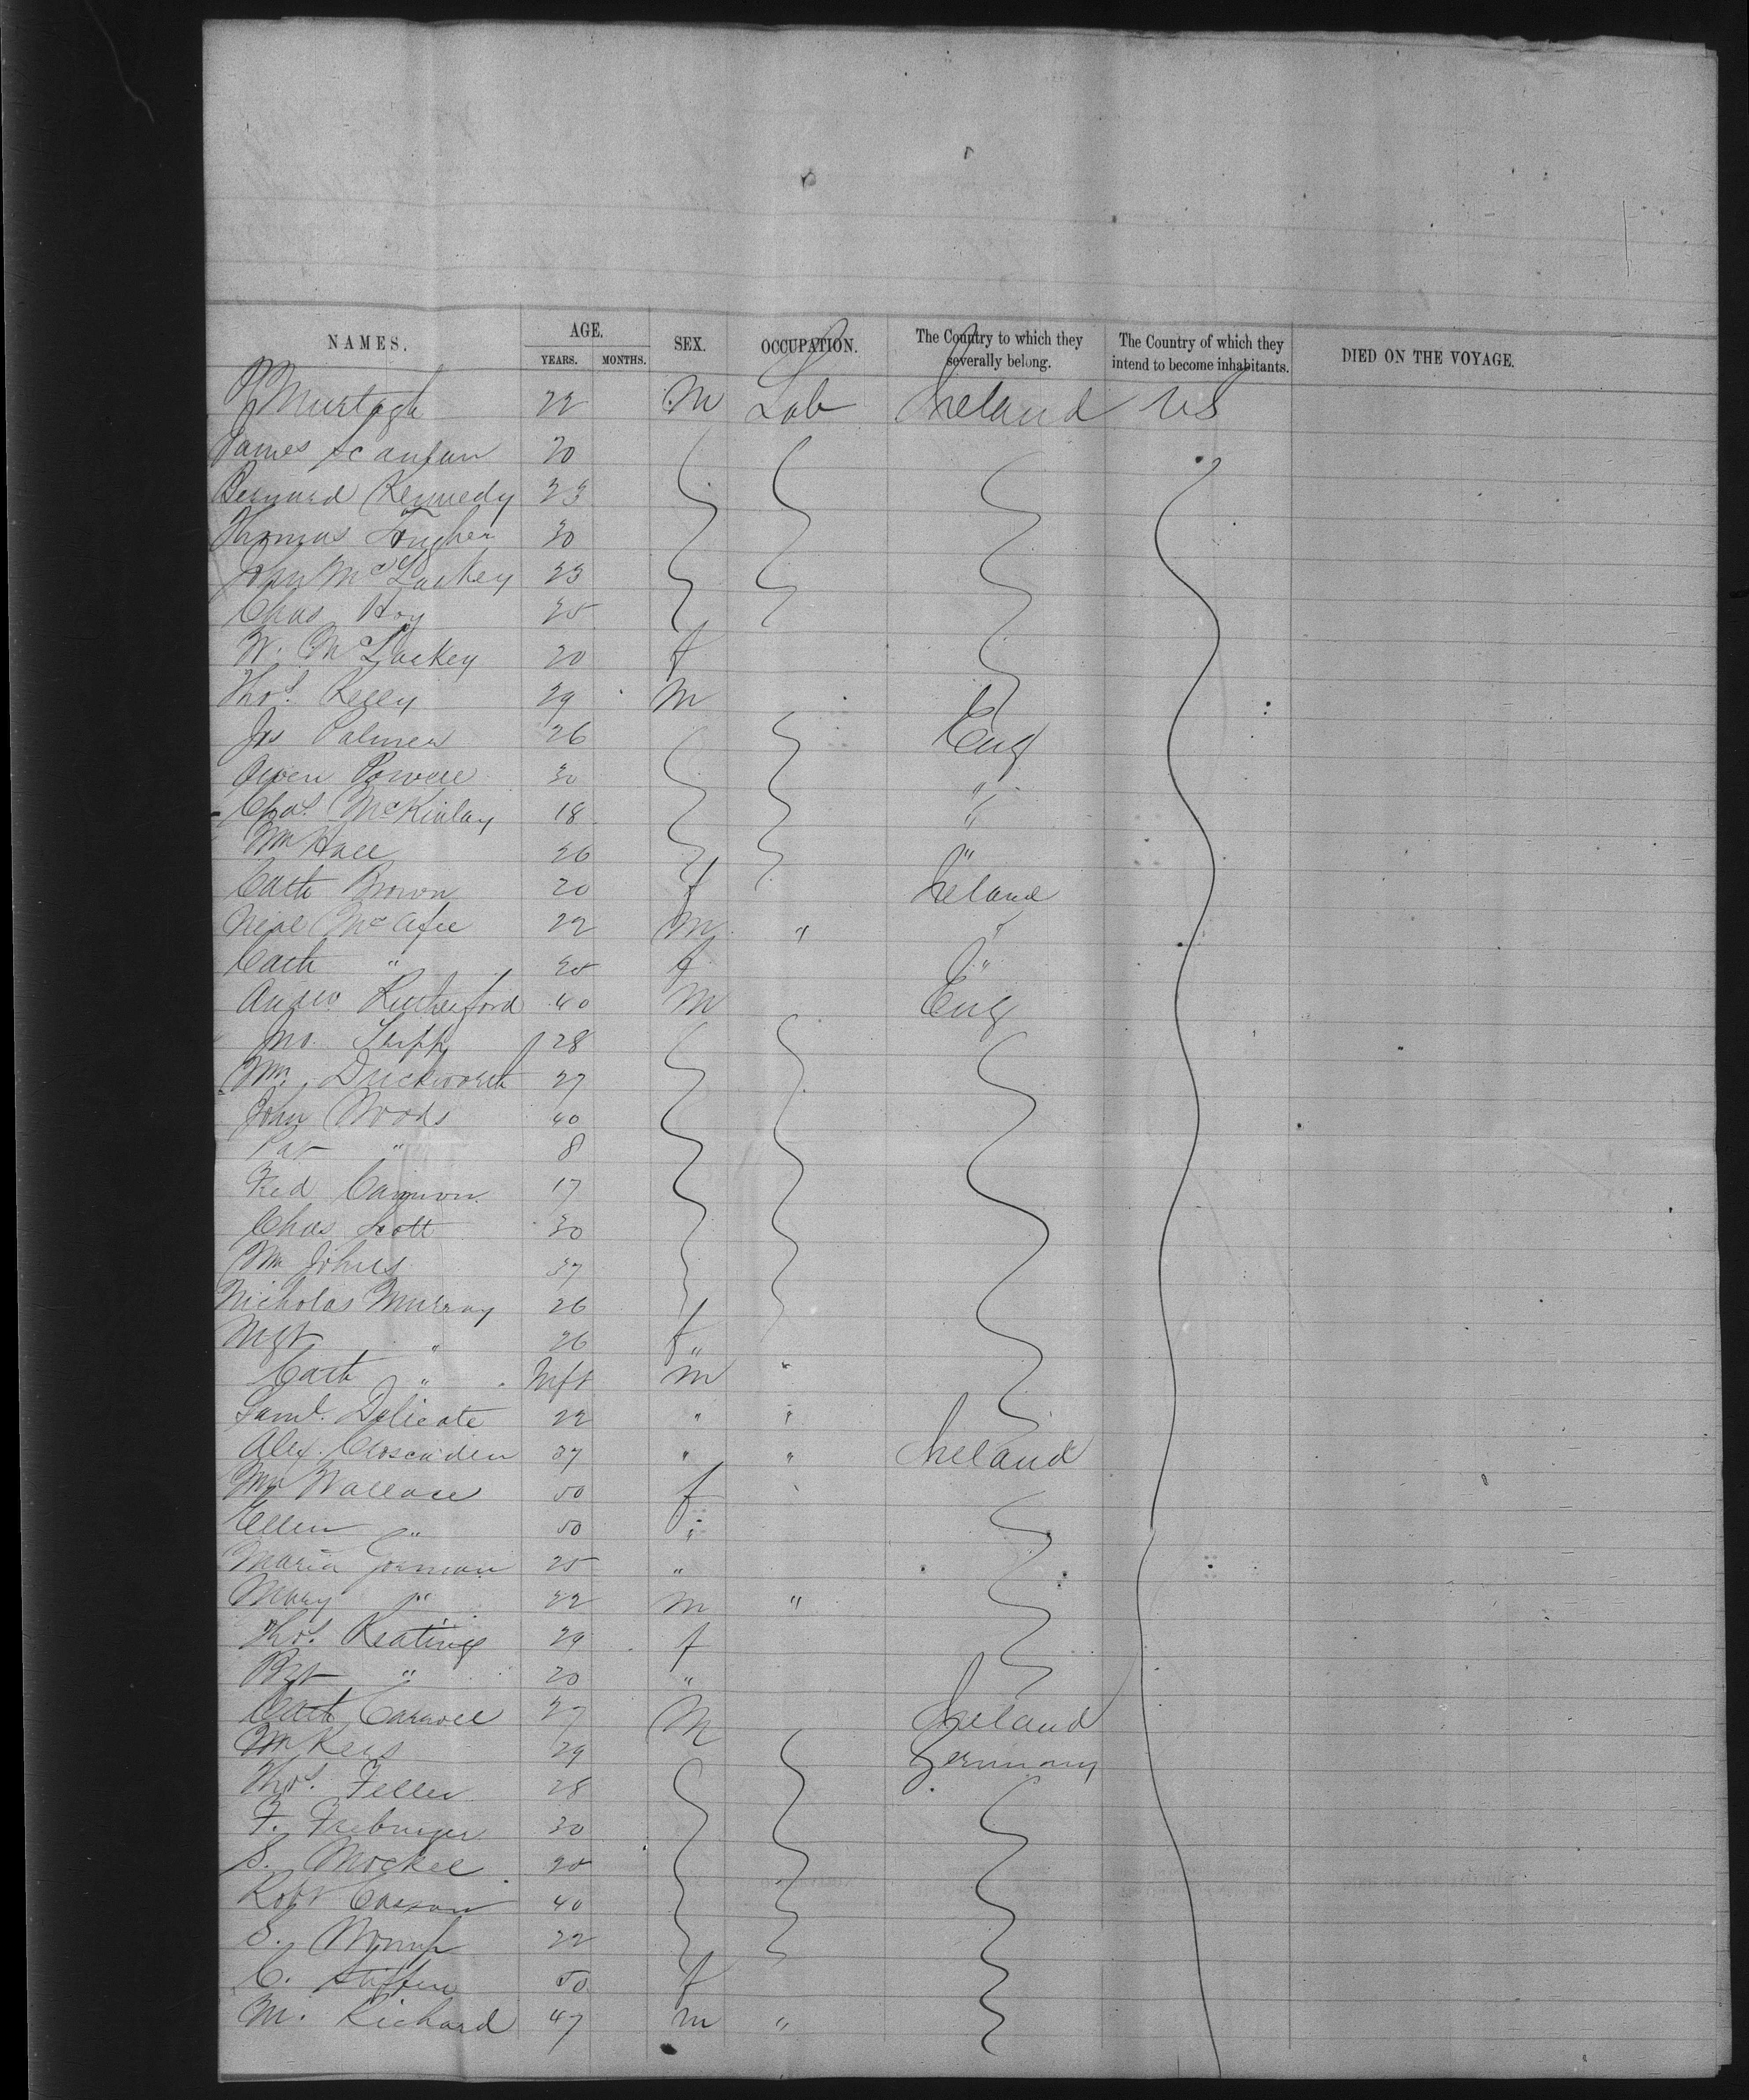 NAMES. AGE. YEARS. MONTHS. SEX. OCCUPATION. The Country to which they severally belong. The Country of which they intend to become inhabitants. DIED ON THE VOYAGE.
J Murtagh 22 M Lab Ireland US
James Scanlan 20
Bernard Kennedy 23
Thomas 30
John McLuckey 23
Chas Hoy 25
W. McLuckey 20 f
Thos Kelly 29 M
Jas Palmer 26 Eng
Owen Powell 30 "
Chas McKinlay 18 "
Wm Hall 26 "
Cath Brown 20 f Ireland
Neal McAfee 22 M " "
Cath " 25 f "
Andw Rutherford 40 M Eng
Jno. 28
Wm Duckworth 27
John Woods 40
Pat " 8
Fred Cannon 17
Chas Scott 30
Wm Johns 37
Nicholas Murray 26
Mgt " 26 f
Cath " Inft " M "
Saml. Delicate 22 " "
Alex. 37 " " Ireland
Wm Wallace 50 f
Ellen " 50 "
Maria Gorman 25 "
Mary " 22 M "
Thos. Keating 29 f
Bgt " 20 "
Cath Carroll 27 M Ireland
Wm Keis 29 Germany
Thos. Feller 28
F. Freburger 30
S. Mockel 20
Robt Carson 40
S. 22
C. 50 f
M. Richard 47 M "